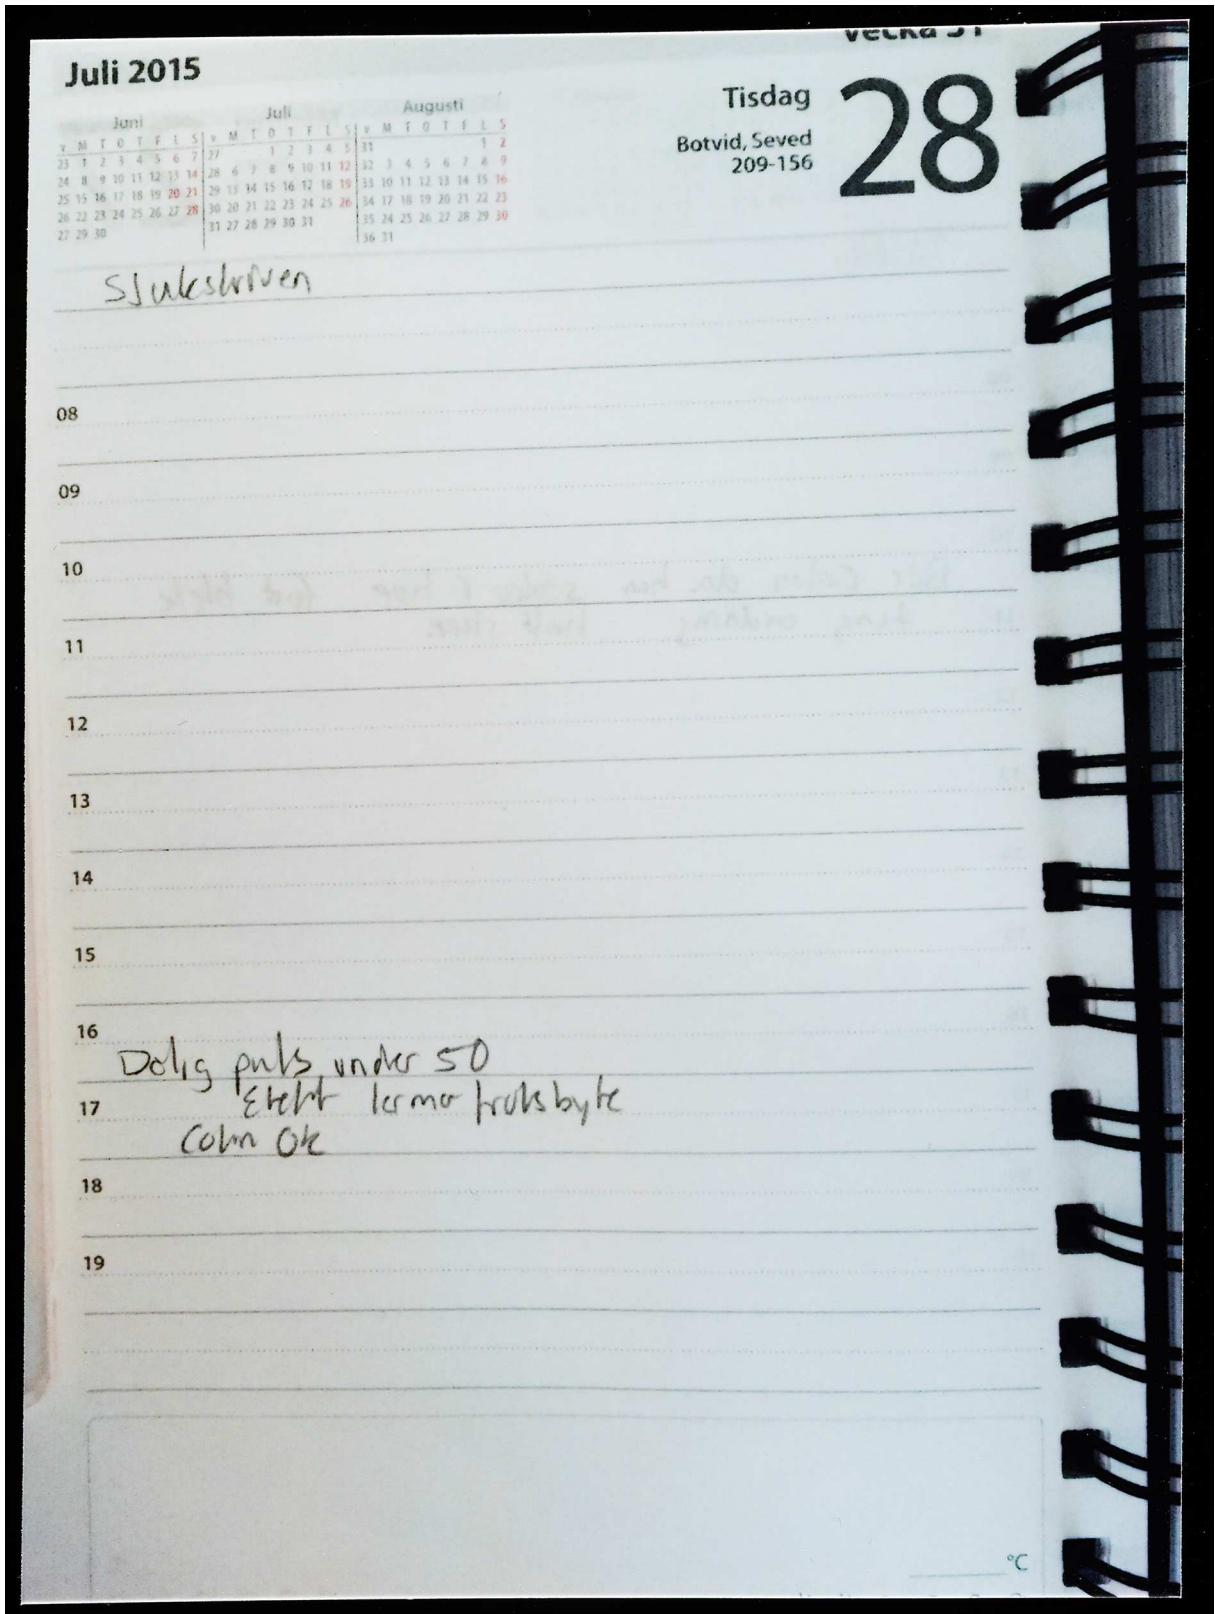 Vecka 31
Juli 2015
Tisdag
28
Botvid, Seved
209-156
Juni
v M T O T F L S
23 1 2 3 4 5 6 7
24 8 9 10 11 12 13 14
25 15 16 17 18 19 20 21
26 22 23 24 25 26 27 28
27 29 30
Juli
v M T O T F L S
27 1 2 3 4 5
28 6 7 8 9 10 11 12
29 13 14 15 16 17 18 19
30 20 21 22 23 24 25 26
31 27 28 29 30 31
Augusti
v M T O T F L S
31 1 2
32 3 4 5 6 7 8 9
33 10 11 12 13 14 15 16
34 17 18 19 20 21 22 23
35 24 25 26 27 28 29 30
36 31
Sjukskriven
08
09
10
11
12
13
14
15
16
Dålig puls under 50
17
Colin Ok
18
19
°C